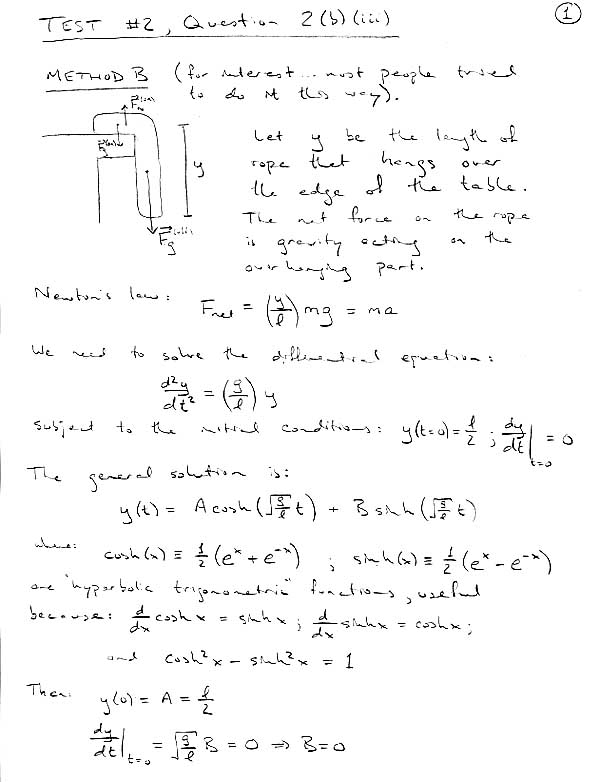 TEST #2, Question 2(b)(iii)
①
METHOD B (for interest... most people tried
to do it this way).
Let y be the length of
rope that hangs over
the edge of the table.
The net force on the rope
is gravity acting on the
overhanging part.
y
Newton's law: F_net = (y/l) mg = ma
We need to solve the differential equation:
d²y/dt² = (g/l) y
subject to the initial conditions: y(t=0) = l/2 ; dy/dt|_{t=0} = 0
The general solution is:
y(t) = A cosh(√(g/l) t) + B sinh(√(g/l) t)
where: cosh(x) ≡ 1/2 (e^x + e^{-x}) ; sinh(x) ≡ 1/2 (e^x - e^{-x})
are "hyperbolic trigonometric" functions, useful
because: d/dx cosh x = sinh x ; d/dx sinh x = cosh x ;
and cosh² x - sinh² x = 1
Then: y(0) = A = l/2
dy/dt|_{t=0} = √(g/l) B = 0 ⇒ B = 0